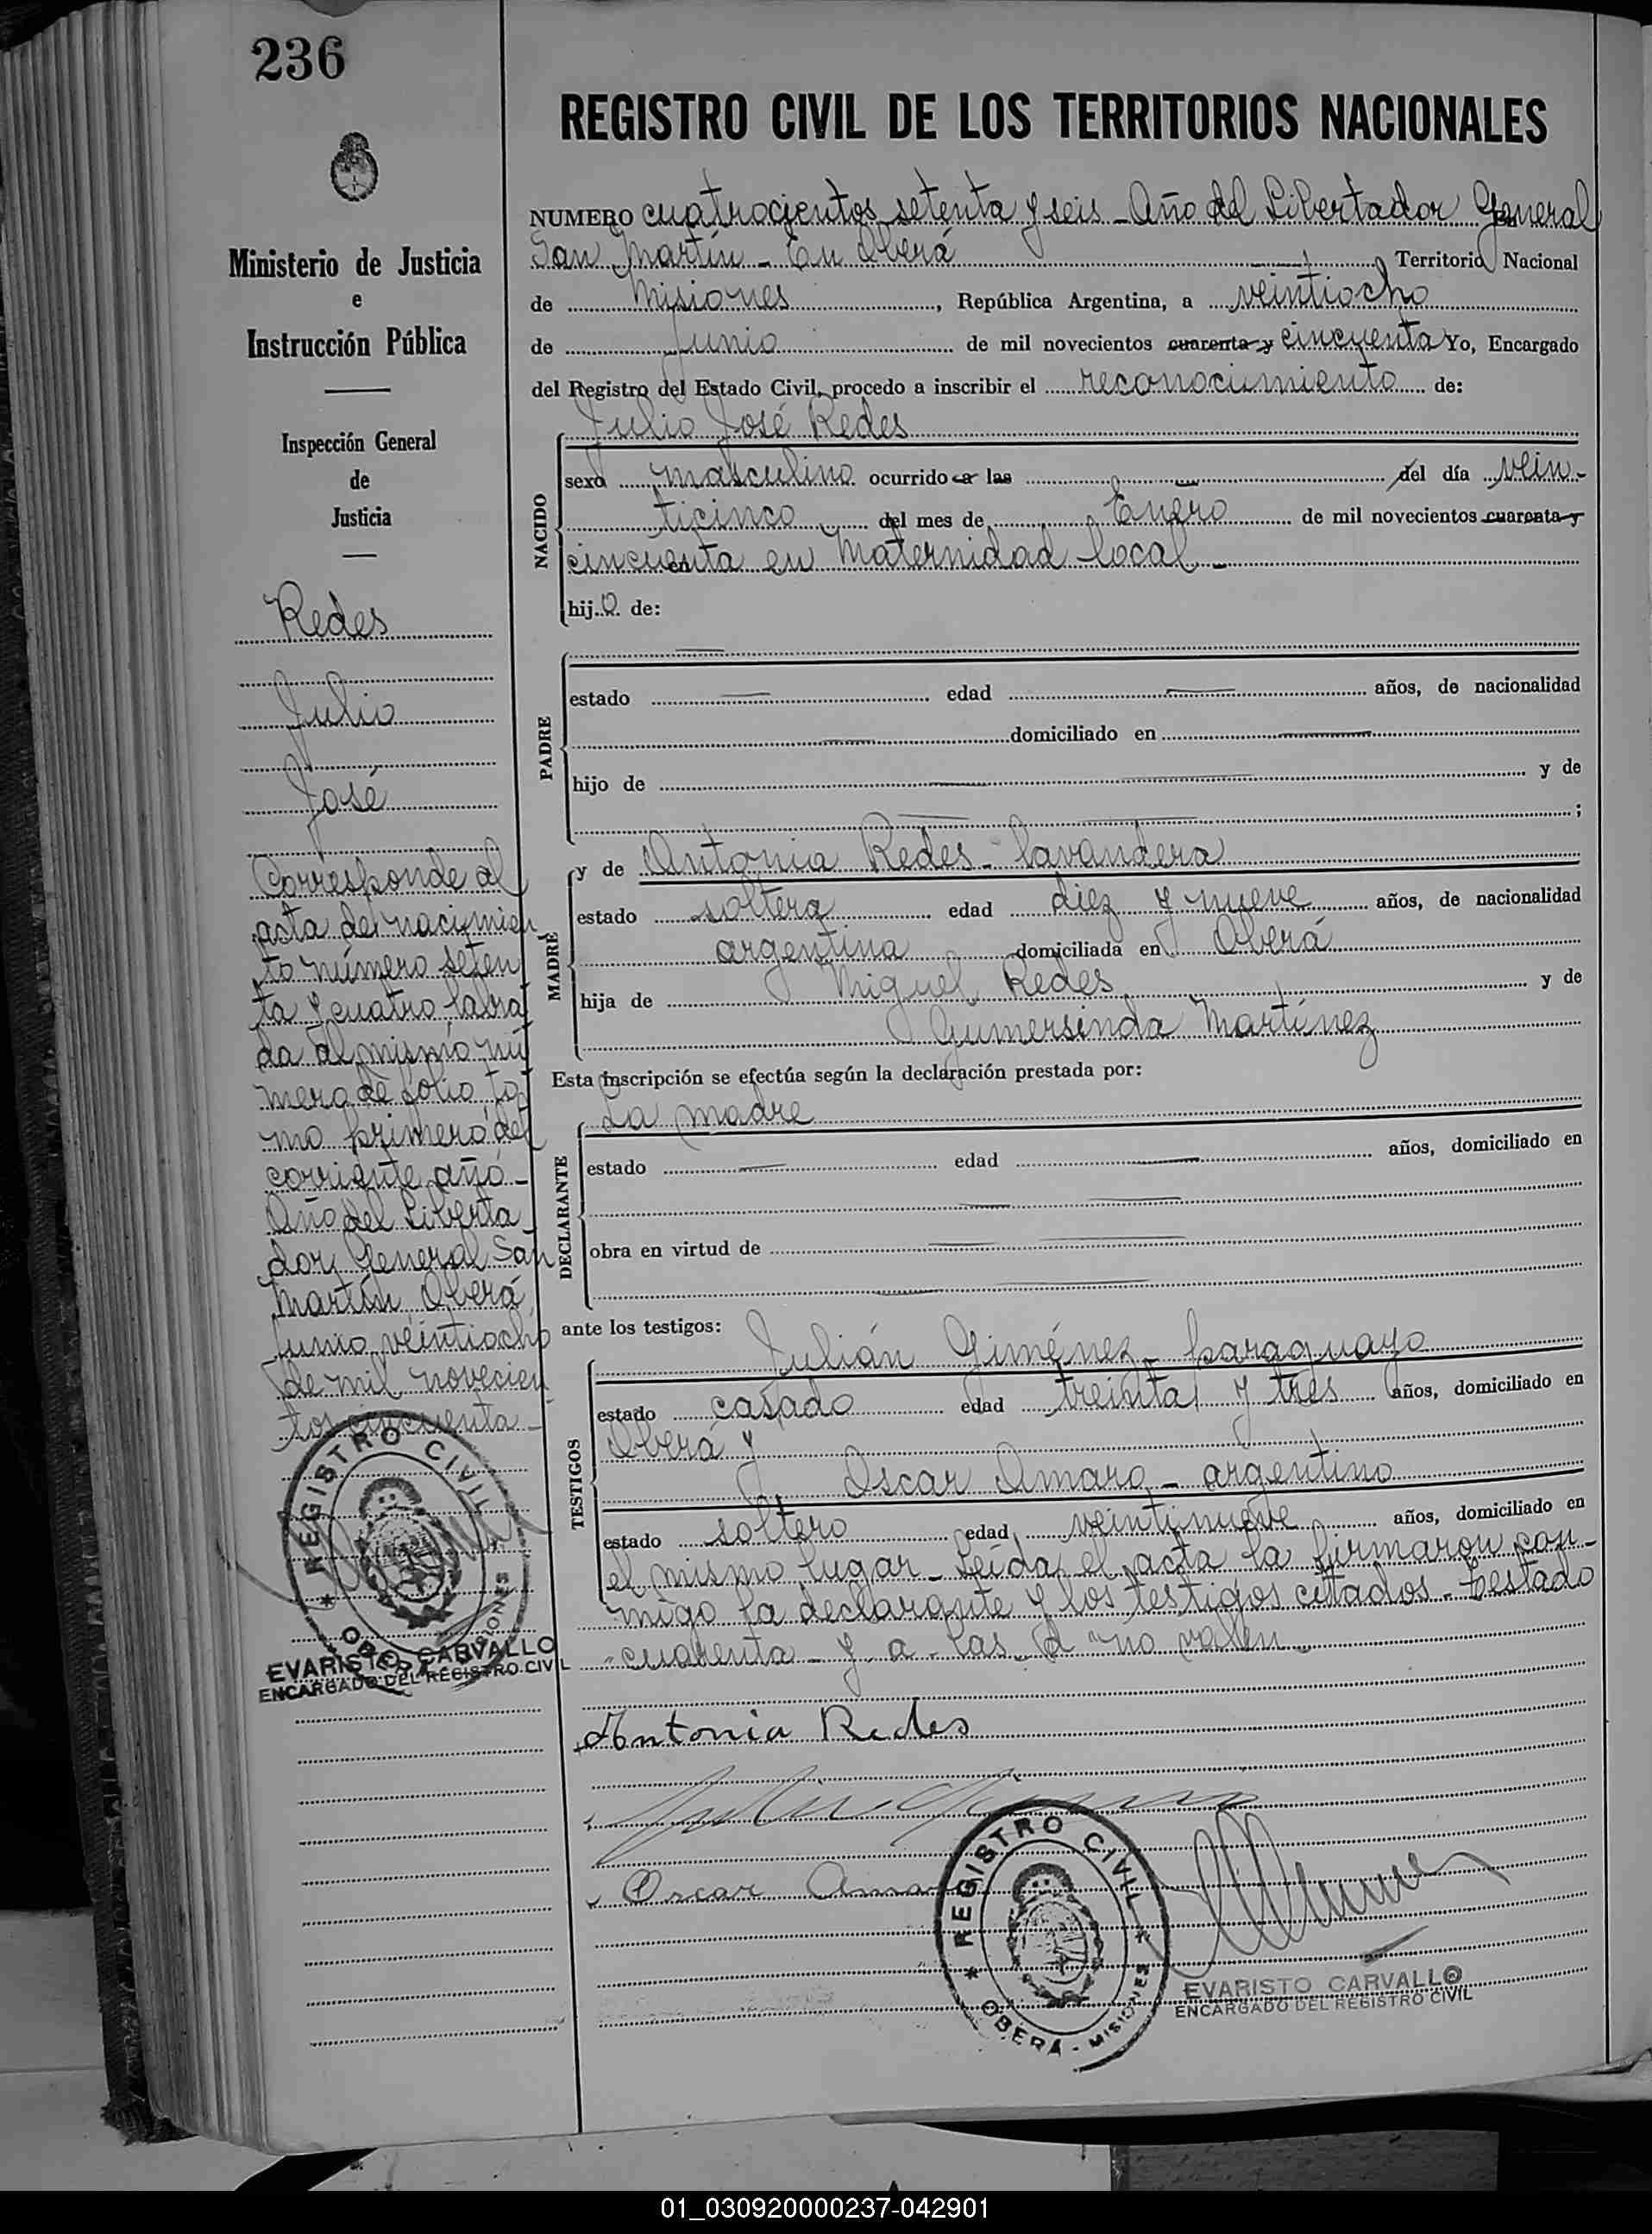 236
REGISTRO CIVIL DE LOS TERRITORIOS NACIONALES
NUMERO cuatrocientos setenta y seis - Año del Libertador General
San Martín - En Oberá Territorio Nacional
de Misiones, República Argentina, a veintiocho
de Junio de mil novecientos cuarenta y cincuenta Yo, Encargado
del Registro del Estado Civil, procedo a inscribir el reconocimiento de:
Julio José Redes
NACIDO
sexo masculino ocurrido a las del día vein-
ticinco del mes de Enero de mil novecientos cuarenta y
cincuenta en Maternidad local -
hijo de:
PADRE
estado edad años, de nacionalidad
domiciliado en
hijo de y de
;
MADRE
y de Antonia Redes - lavandera
estado soltera edad diez y nueve años, de nacionalidad
argentina domiciliada en Oberá
hija de Miguel Redes y de
Gumersinda Martínez
Esta inscripción se efectúa según la declaración prestada por:
DECLARANTE
La madre
estado edad años, domiciliado en
obra en virtud de
ante los testigos:
TESTIGOS
Julián Giménez - paraguayo
estado casado edad treinta y tres años, domiciliado en
Oberá y
Oscar Amaro - argentino
estado soltero edad veintinueve años, domiciliado en
el mismo lugar - Leída el acta la firmaron con-
migo la declarante y los testigos citados - Testado
cuarenta - y - a - las - d - no valen -
Antonia Redes
Oscar Amaro
REGISTRO CIVIL
* OBERÁ - MISIONES *
EVARISTO CARVALLO
ENCARGADO DEL REGISTRO CIVIL
Ministerio de Justicia
e
Instrucción Pública
Inspección General
de
Justicia
Redes
Julio
José
Corresponde al
acta de nacimien
to número seten
ta y cuatro labra
da al mismo nú
mero de folio, to
mo primero del
corriente año -
Año del Liberta
dor General San
Martín Oberá
Junio veintiocho
de mil novecien
tos cincuenta -
REGISTRO CIVIL
* OBERÁ - MISIONES *
EVARISTO CARVALLO
ENCARGADO DEL REGISTRO CIVIL
01_030920000237-042901